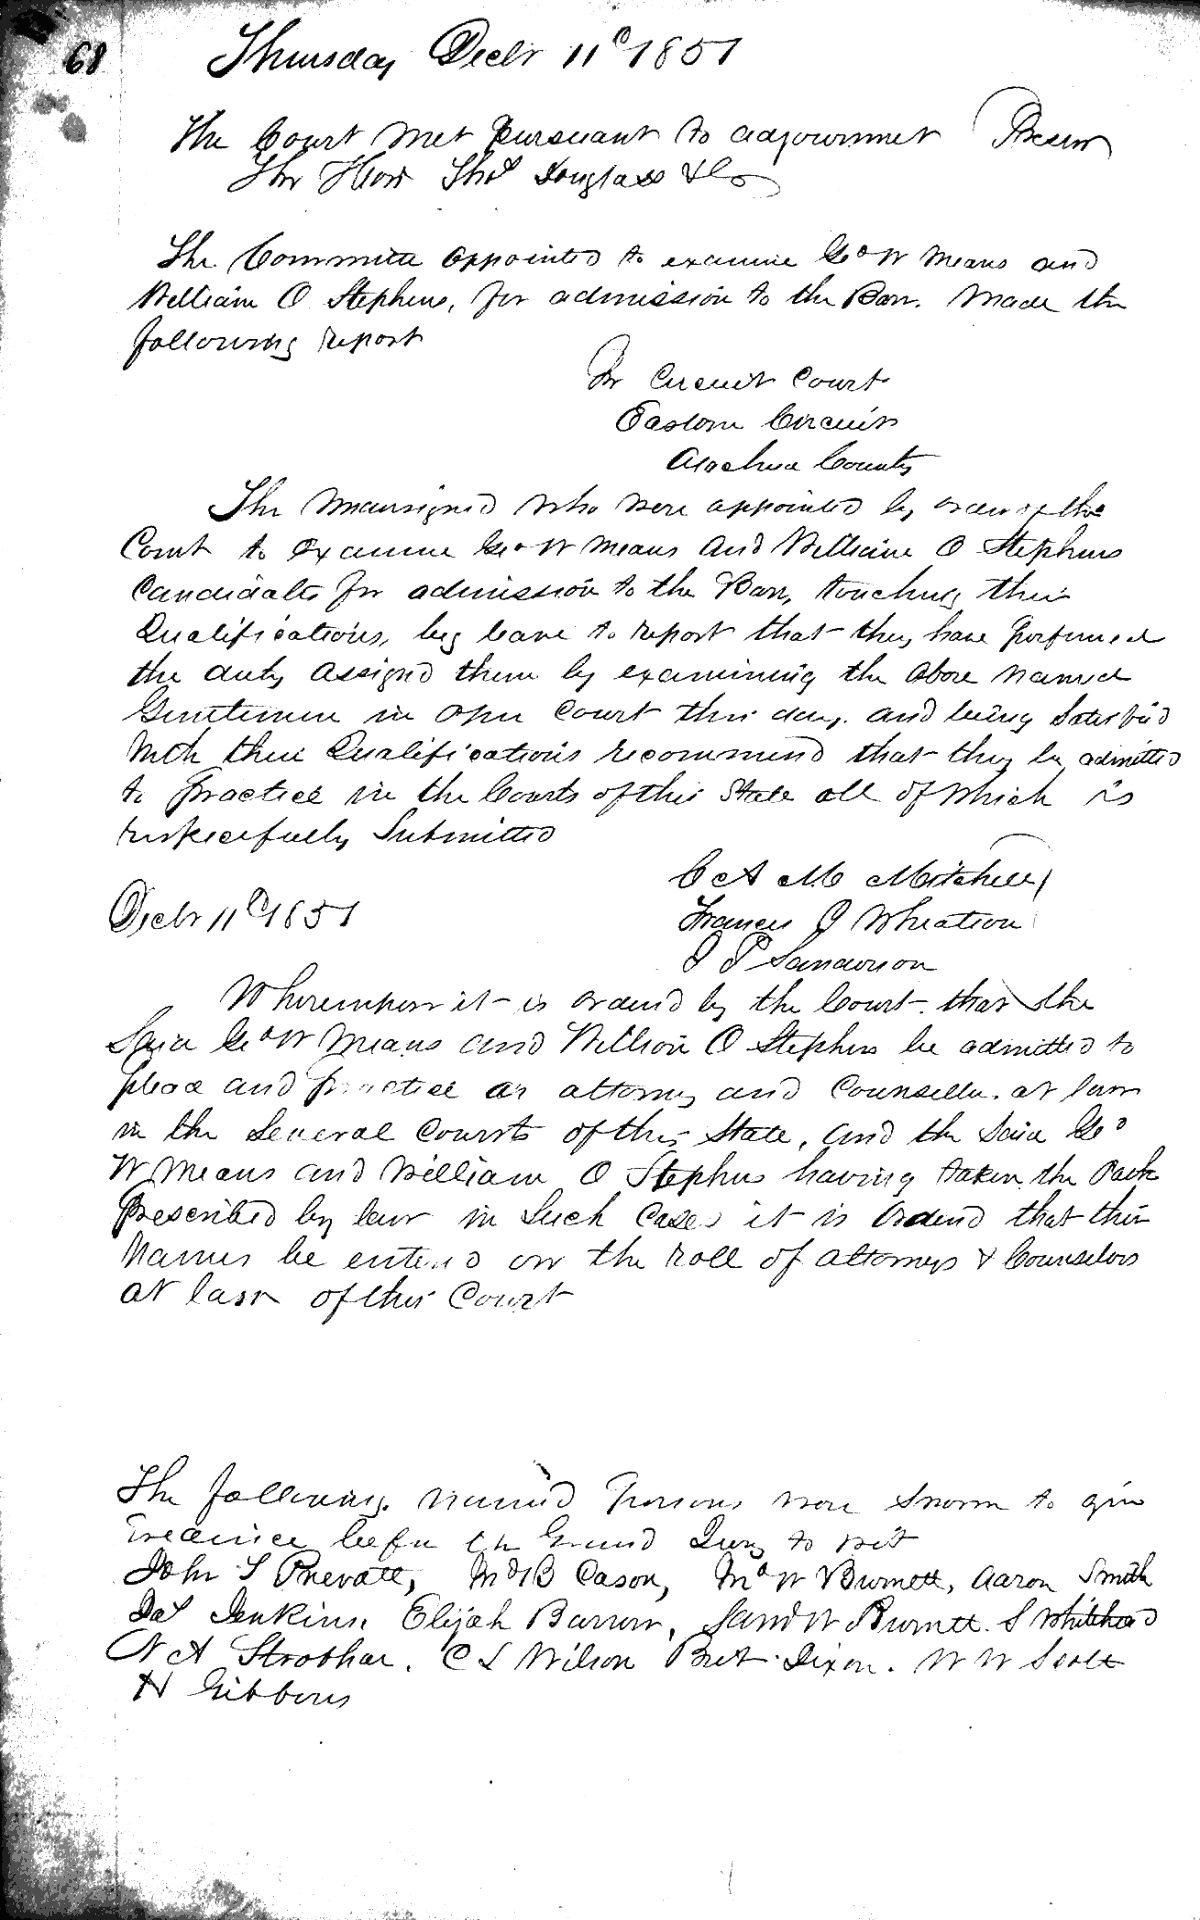 68
Thursday Decbr 11th 1851
The Court met pursuant to adjournmet Present
The Hon Thos Douglass &Co
The Committee appointed to examine Geo W Means and
William O Stephens, for admission to the Barr. Made the
following report
In Circuit Court
Eastern Circuit
Alachua County
The undersigned who were appointed by order of the
Court to examine Geo W Means and William O Stephens
Candidates for admission to the Barr, touching their
Qualifications, beg leave to report that they have performed
the duty assigned them by examining the above named
Gentlemen in open Court this day. and being Satisfied
With their Qualifications recommend that they be admitted
to Practice in the Courts of this State all of which is
respectfully Submitted
C A M Mitchell
Decbr 11th 1851
Francis J Wheaton
J P Sanderson
Whereupon it is ordered by the Court. that the
Said Geo W Means and William O Stephens be admitted to
plead and practice as attorney and Counsellor at law
in the Several Courts of this State, and the Said Geo
W Means and William O Stephens having taken the Oath
Prescribed by law in Such Cases it is Ordered that their
Names be entered on the roll of attorneys & Counselors
at law of this Court
The following named Persons were sworn to give
Evedince before the Grand Jury to wit
John S Prevatt, Wm B Cason, Wm W Burnett, Aaron Smith
Jas Jenkins, Elijah Barrow, Saml W Burnett. S Whitehead
N A Strobhar. C L Wilson Bret Dixon. W W Scott
H Gibbons